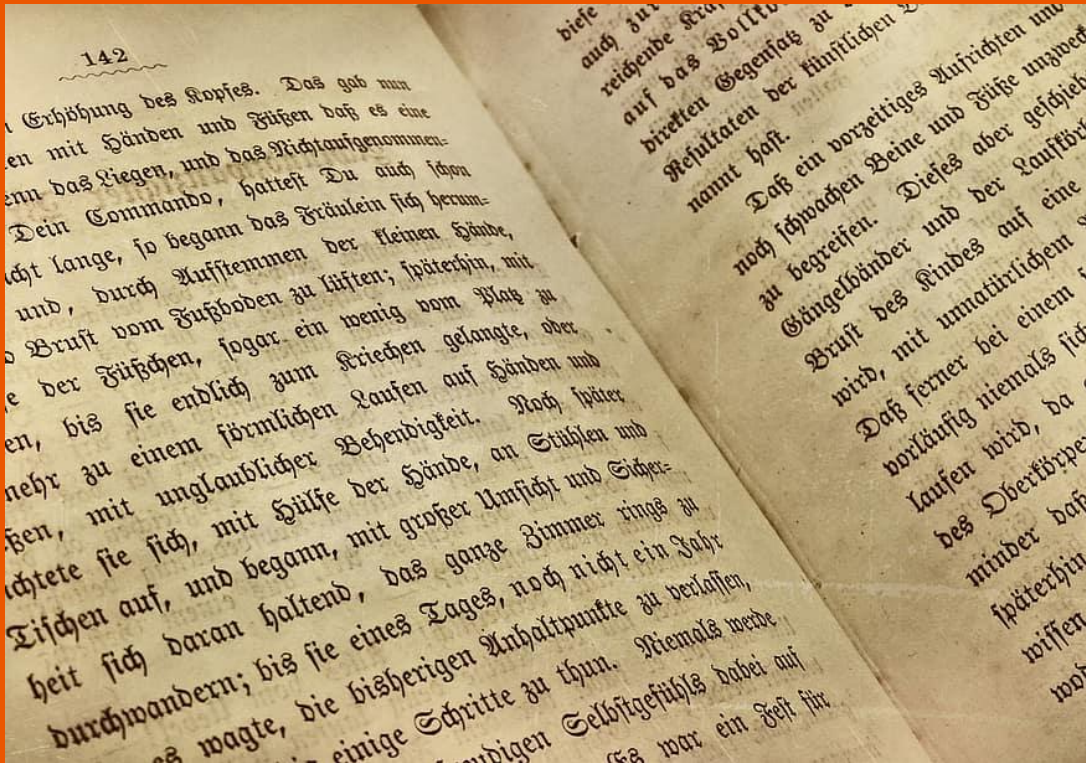 142
Erhöhung des Kopfes. Das gab nun
en mit Händen und Füßen daß es eine
enn das Liegen, und das Nichtaufgenommen-
Dein Commando, hattest Du auch schon
icht lange, so begann das Fräulein sich herum-
und, durch Aufstemmen der kleinen Hände,
Brust vom Fußboden zu lüften; späterhin, mit
e der Füßchen, sogar ein wenig vom Platz zu
en, bis sie endlich zum Kriechen gelangte, oder
mehr zu einem förmlichen Laufen auf Händen und
ßen, mit unglaublicher Behendigkeit. Noch später
ichtete sie sich, mit Hülfe der Hände, an Stühlen und
Tischen auf, und begann, mit großer Umsicht und Sicher-
heit sich daran haltend, das ganze Zimmer rings zu
durchwandern; bis sie eines Tages, noch nicht ein Jahr
es wagte, die bisherigen Anhaltpunkte zu verlassen,
einige Schritte zu thun. Niemals werde
eudigen Selbstgefühls dabei auf
Es war ein Fest für
diese
auch zur
reichende Kra
auf das Vollko
direkten Gegensatz zu
Resultaten der künstlichen
nannt hast.
Daß ein vorzeitiges Aufrichten und
noch schwachen Beine und Füße unzweck
zu begreifen. Dieses aber geschieh
Gängelbänder und der Laufkör
Brust des Kindes auf eine
wird, mit unnatürlichem
Daß ferner bei einem
vorläufig niemals sich
laufen wird, da
des Oberkörpe
minder daß
späterhin
wissen
wo